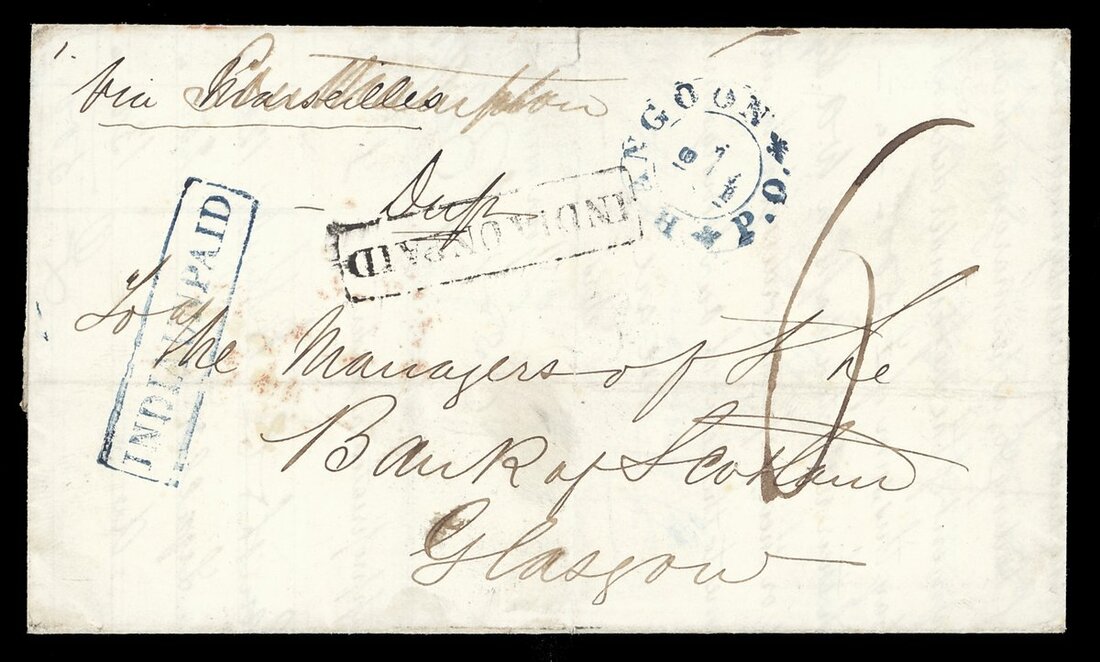 via Marseilles
RANGOON * P.O. *
Dup
INDIA UNPAID
INDIA UNPAID
To the Managers of the
Bank of Scotland
Glasgow
6